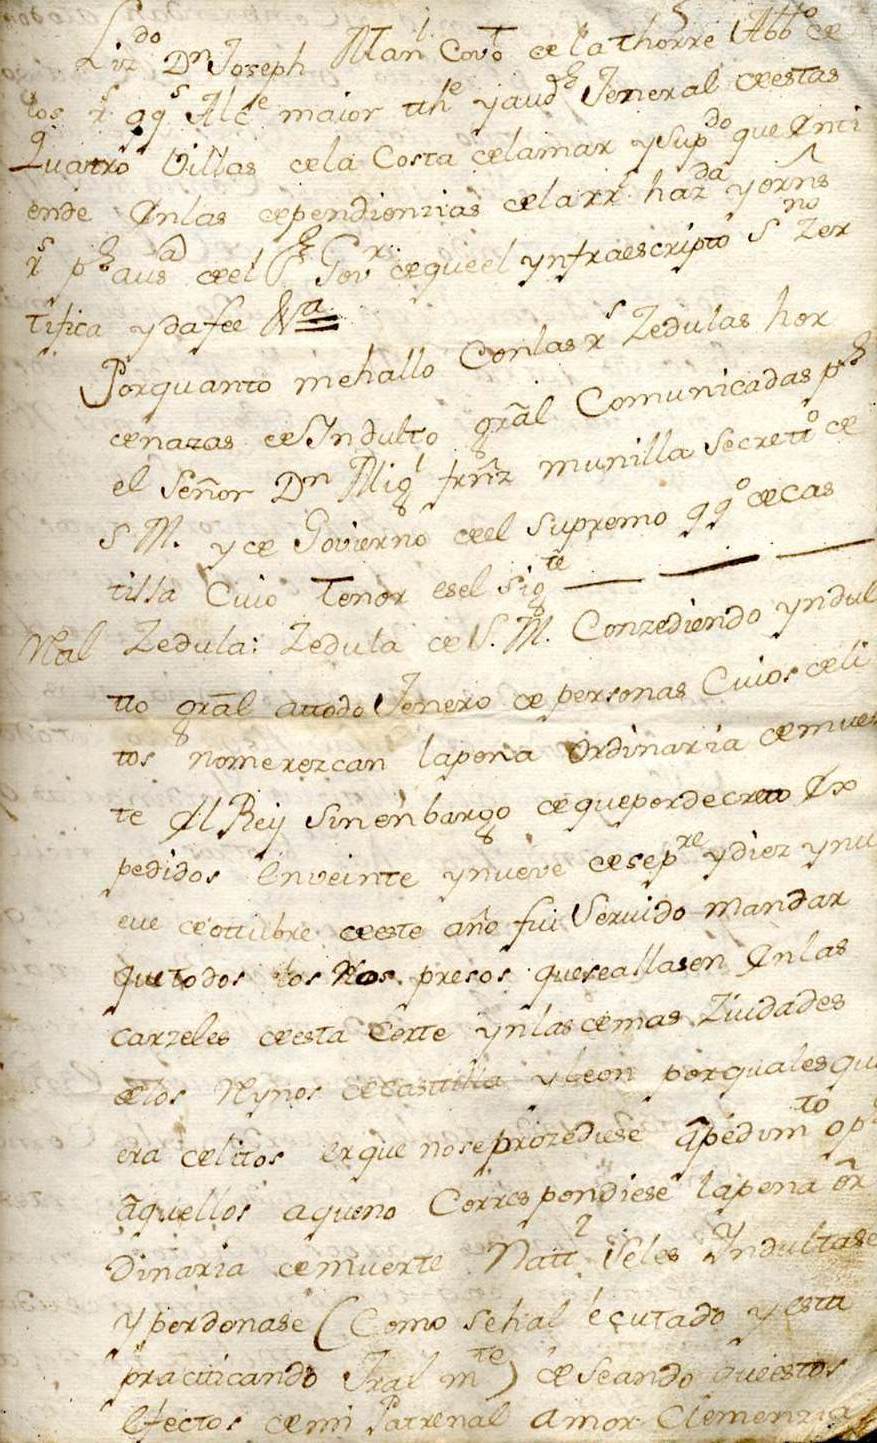 Lizdo Dn Joseph Manl Covo de la thorre Abbdo de
los Rs qqs Alce maior the y audr Jeneral de estas
Quatro Villas de la Costa de la mar y supdo que enti
ende en las dependienzias de la Rl hazda y
Rs pr ausa de el Sr Govr de que el ynfraescripto Sno Zer
tifica y da fee &a
Por quanto me hallo Con las Rs Zedulas hor
denazas de Indulto grãl Comunicadas pr
el Señor Dn Migl frñz munilla Secretro de
S. M. y de Govierno de el Supremo qqo de Cas
tilla Cuio Tenor es el sigte
Ral Zedula: Zedula de S. M. Conzediendo yndul
tto grãl a ttodo Jenero de personas Cuios deli
tos no merezcan la pena ordinaria de muer
te El Rey Sin enbargo de que por decreto Ex
pedidos en veinte y nueve de sepre y diez y nu
eve de ottubre de este año fui Servido mandar
que todos los Reos presos que se allasen en las
carzeles de esta Corte y en las demas Ziudades
de los Rynos de Casttilla y Leon por qualesqui
era delitos en que no se prozediese a pedimto o pr
aquellos a que no Correspondiese la pena or
dinaria de muerte Natl Se les Yndultase
y perdonase (Como se ha executado y esta
practicando Jralmte) deseando que estos
efectos de mi Patrenal amor Clemenzia